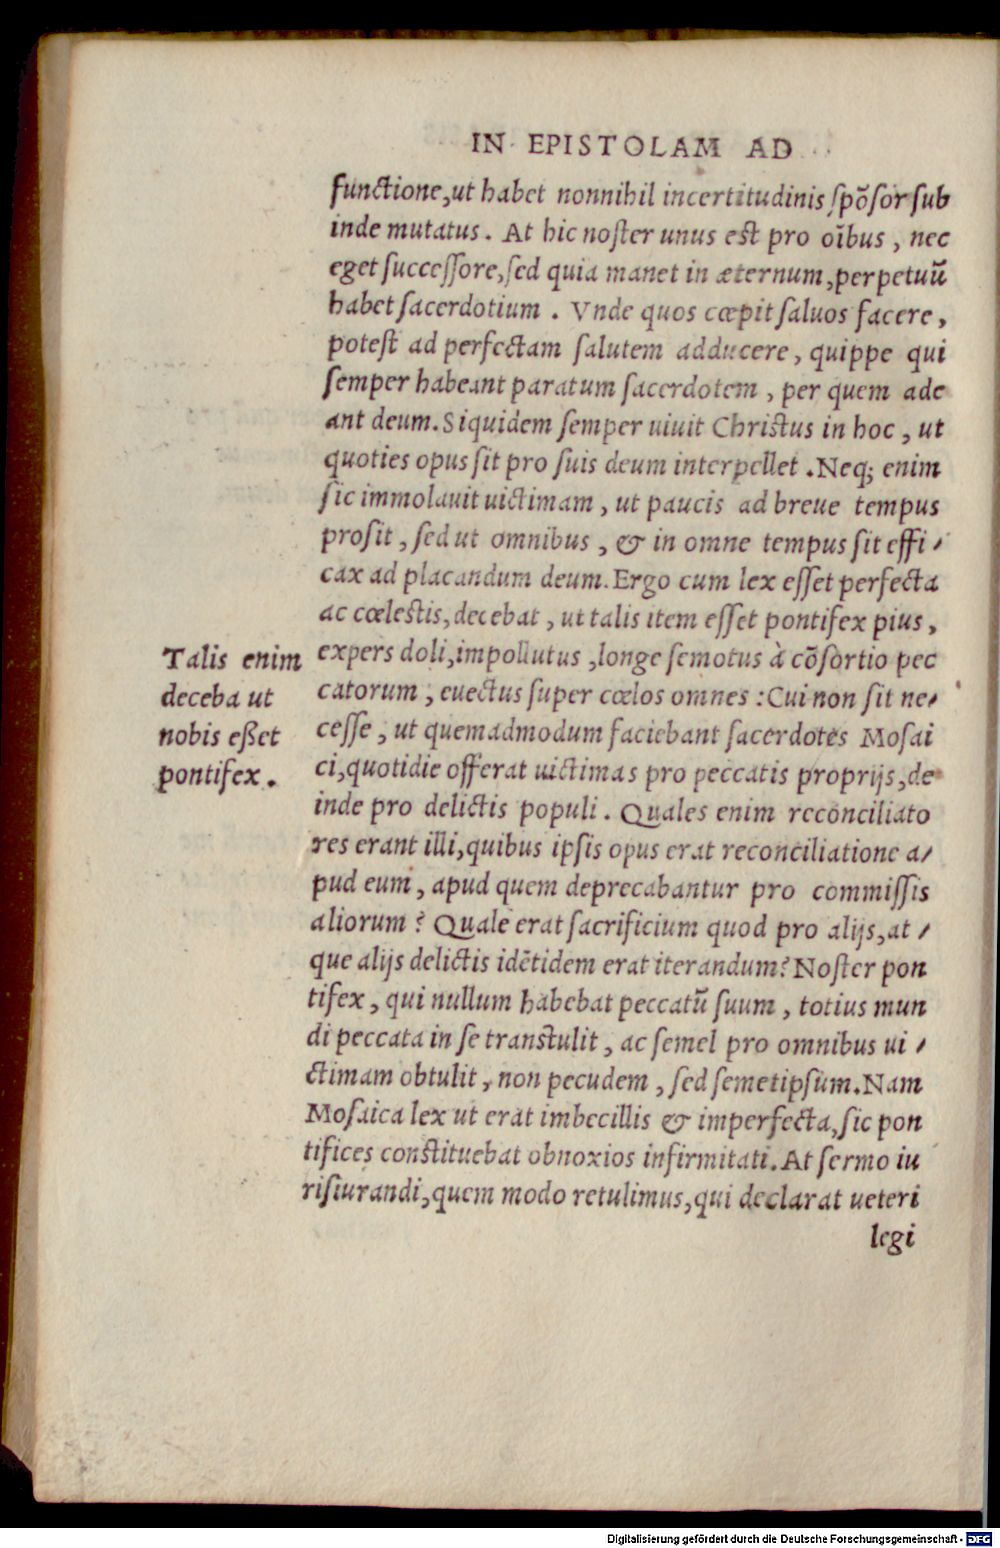 IN EPISTOLAM AD
functione,ut habet nonnihil incertitudinis ſpõſor ſub
inde mutatus. At hic noſter unus eſt pro oĩbus, nec
eget ſucceſſore, ſed quia manet in æternum, perpetuũ
habet ſacerdotium. Vnde quos cœpit ſaluos facere,
poteſt ad perfectam ſalutem adducere, quippe qui
ſemper habeant paratum ſacerdotem, per quem ade
ant deum. Siquidem ſemper uiuit Chriſtus in hoc, ut
quoties opus ſit pro ſuis deum interpellet. Neq; enim
ſic immolauit uictimam, ut paucis ad breue tempus
proſit, ſed ut omnibus, & in omne tempus ſit effi-
cax ad placandum deum. Ergo cum lex eſſet perfecta
ac cœleſtis, decebat, ut talis item eſſet pontifex pius,
expers doli, impollutus, longe ſemotus à cõſortio pec
catorum, euectus ſuper cœlos omnes: Cui non ſit ne-
ceſſe, ut quemadmodum faciebant ſacerdotes Moſai
ci, quotidie offerat uictimas pro peccatis proprijs, de
inde pro delictis populi. Quales enim reconciliato
res erant illi, quibus ipſis opus erat reconciliatione a-
pud eum, apud quem deprecabantur pro commiſſis
aliorum? Quale erat ſacrificium quod pro alijs, at-
que alijs delictis idẽtidem erat iterandum? Noſter pon
tifex, qui nullum habebat peccatũ ſuum, totius mun
di peccata in ſe tranſtulit, ac ſemel pro omnibus ui-
ctimam obtulit, non pecudem, ſed ſemetipſum. Nam
Moſaica lex ut erat imbecillis & imperfecta, ſic pon
tifices conſtituebat obnoxios infirmitati. At ſermo iu
riſiurandi, quem modo retulimus, qui declarat ueteri
legi
Talis enim
deceba ut
nobis eßet
pontifex.
Digitalisierung gefördert durch die Deutsche Forschungsgemeinschaft - DFG